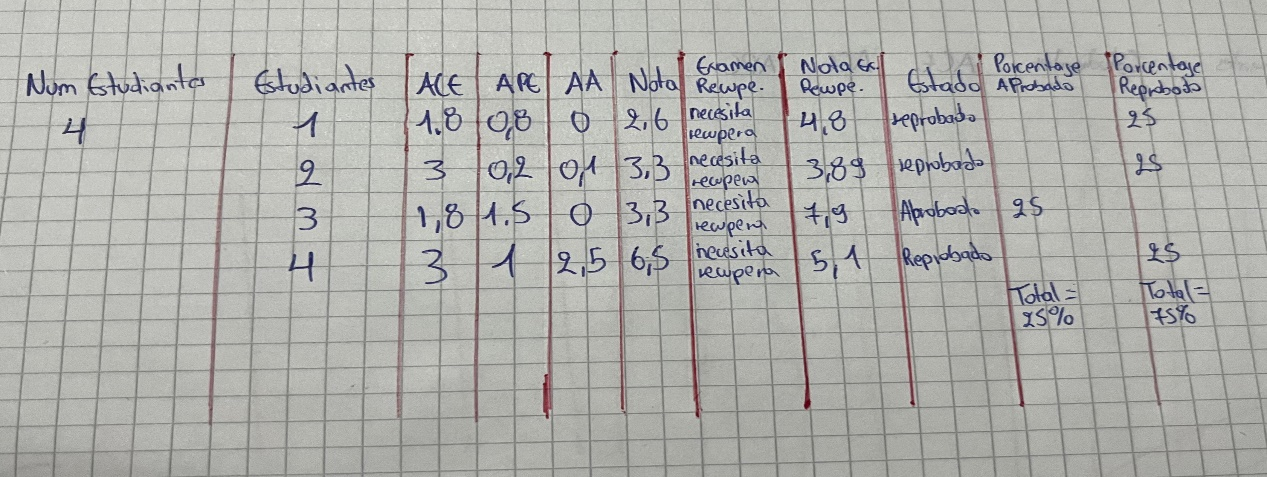 Num Estudiantes Estudiantes ACE APE AA Nota Examen Recupe. Nota Ex. Recupe. Estado Porcentage AProbado Porcentage Reprobado
4 1 1.8 0,8 0 2,6 necesita recupera 4,8 reprobado 25
2 3 0,2 0,1 3,3 necesita recupera 3,89 reprobado 25
3 1,8 1.5 0 3,3 necesita recupera 7,9 Aprobado 25
4 3 1 2,5 6,5 necesita recupera 5,1 Reprobado 25
Total = 25% Total = 75%